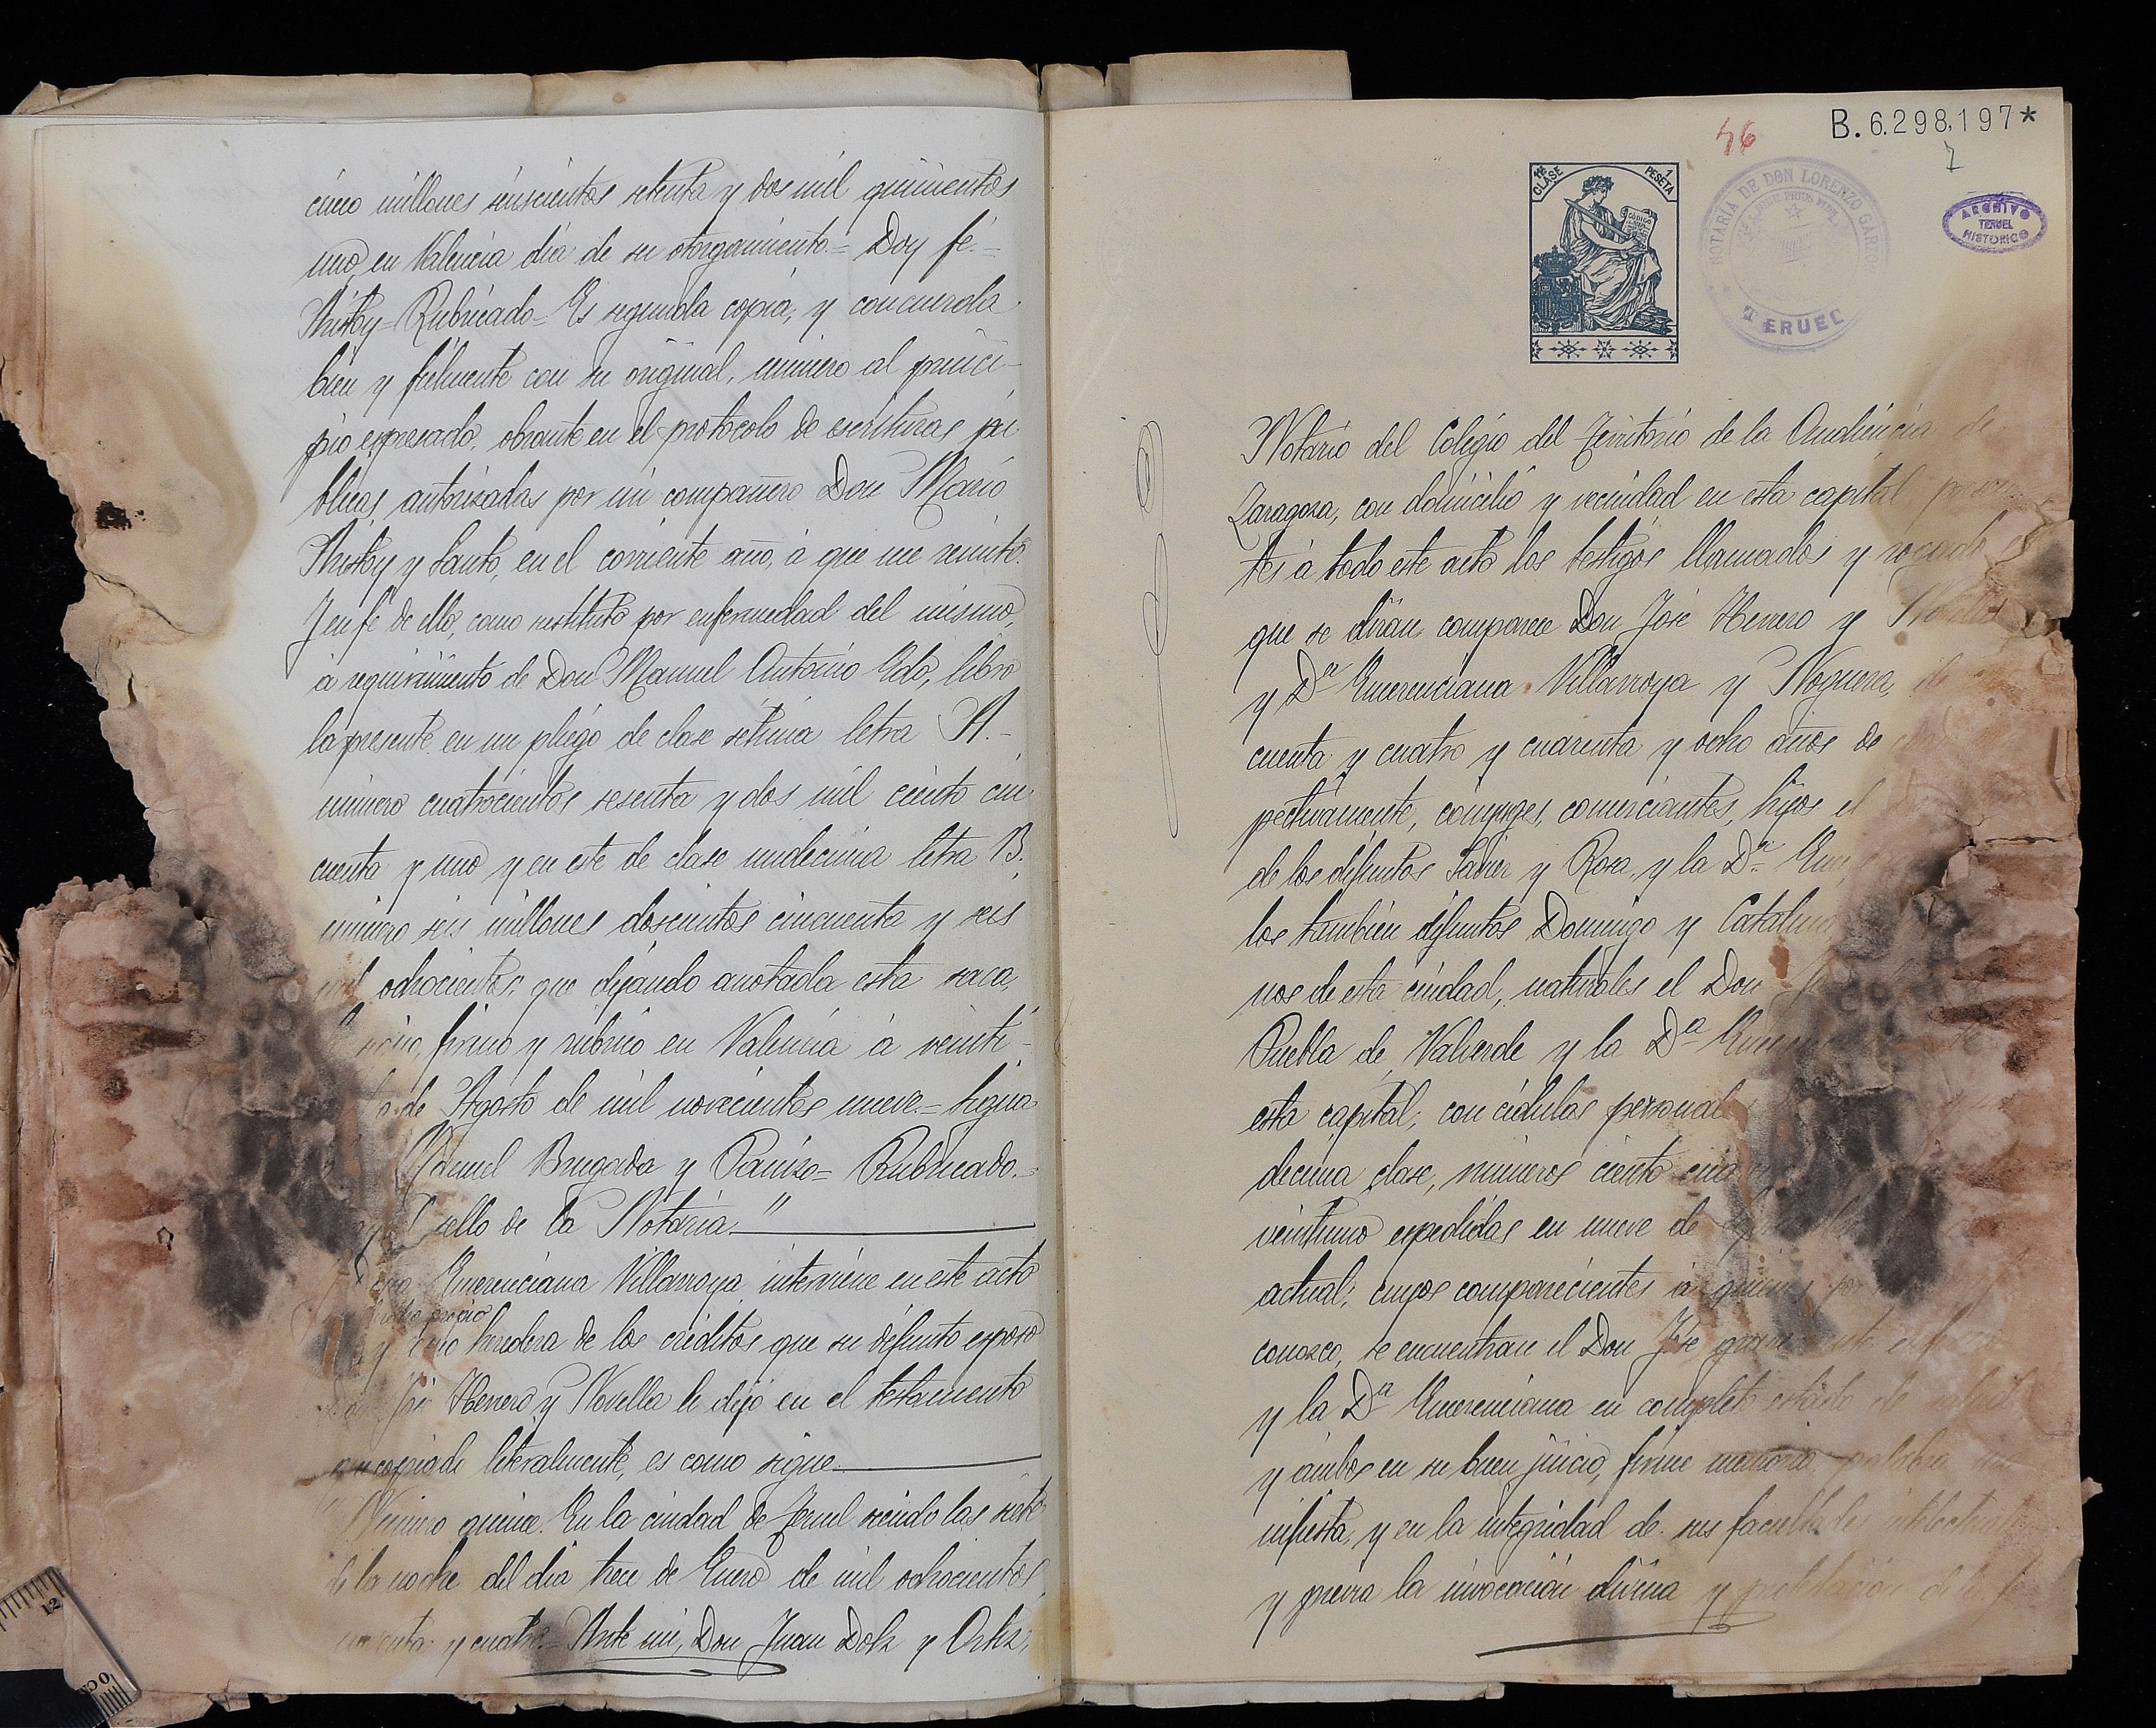 cinco millones seiscientos setenta y dos mil quinientos
uno, en Valencia dia de su otorgamiento.= Doy fé.=
Rubricado= Es segunda copia, y concuerda
bien y fielmente con su original, número al princi-
pio espresado, obrante en el protocolo de escrituras pú
blicas autorizadas por mi compañero Don Mario
y Santo, en el corriente año, á que me remito.
Y en fé de ello, como sustituto por enfermedad del mismo,
á requirimiento de Don Manuel Antonio Edo, libro
la presente en un pliego de clase sétima letra A.-
número cuatrocientos sesenta y dos mil ciento cin
cuenta y uno y en este de clase undecima letra B.
número seis millones doscientos cincuenta y seis
mil ochocientos, que dejando anotada esta saca,
signo, firmo y rubrico en Valencia á veinti-
de Agosto de mil novecientos nueve.= Signa
Brugada y Panizo= Rubricado.=
sello de la Notaria."
Emerenciana Villarroya interviene en este acto
propio
y como heredera de los créditos que su difunto esposo
Don José Herrero y Novella le dejó en el testamento
que copiado literalmente, es como sigue
Número quince. En la ciudad de Teruel siendo las siete
de la noche del dia trece de Enero de mil ochocientos
noventa y cuatro.= Ante mi, Don Juan Dolz y Ortiz,
B.6.298,197*
46
7
11ª CLASE
1 PESETA
CODIGO
NOTARIA DE DON LORENZO GARZON
TERUEL
ARCHIVO
TERUEL
HISTORICO
Notario del Colegio del Territorio de la Audiencia de
Zaragoza, con domicilio y vecindad en esta capital presen
tes á todo este acto los testigos llamados y rogados
que se dirán, comparece Don José Herrero y Novella
y Dª Emerenciana Villarroya y Noguera, de
cuenta y cuatro y cuarenta y ocho años de
pectivamente, conyuges, comerciantes, hijos el
de los difuntos Javier y Rosa, y la Dª
los tambien difuntos Domingo y Catalina
nos de esta ciudad, naturales el Don
Puebla de Valverde y la Dª
esta capital; con cédulas personales
decima clase, números ciento
veintiuno espedidas en nueve de
actual; cuyos comparecientes á quienes
conozco, se encuentran el Don José
y la Dª Emerenciana en completo estado de salud
y ambos en su buen juicio, firme memoria, palabra
nifiesta, y en la integridad de sus facultades intelectuales
y previa la invocación divina y protestación de la fé